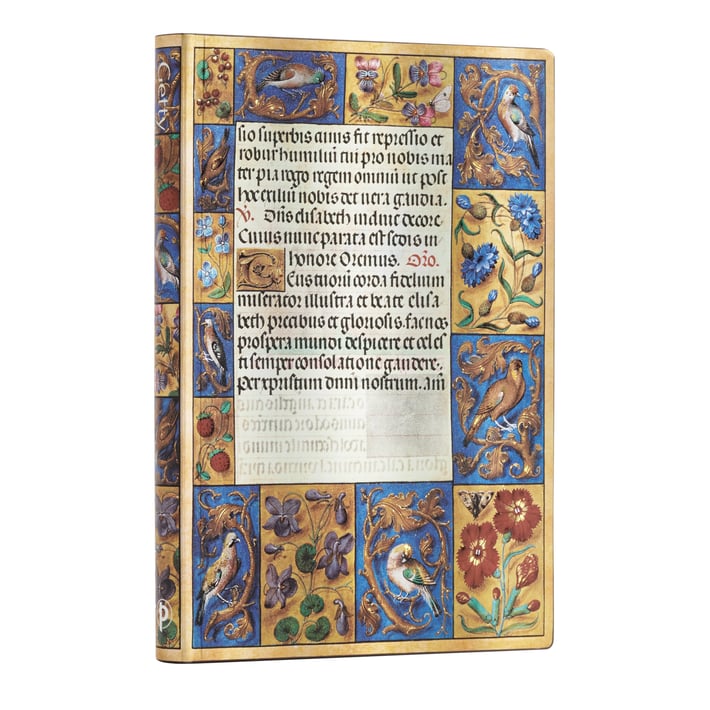 Getty
sio superbis cuius fit repressio et
robur humiliū cui pro nobis ma
ter pia rogo regem omniū ut post
hoc exiliū nobis det uera gaudia.
V. Dn̄s elisabeth induit decore.
Cuius nunc parata est sedis in
honore Oremus. Or̄o.
Deus tuorū corda fidelium
miserator illustra et beate elisa
beth precibus et gloriosis. fac nos
prospera mundi despicere et celes
ti semper consolatione gaudere.
per xpristum dnm̄ nostrum. am̄